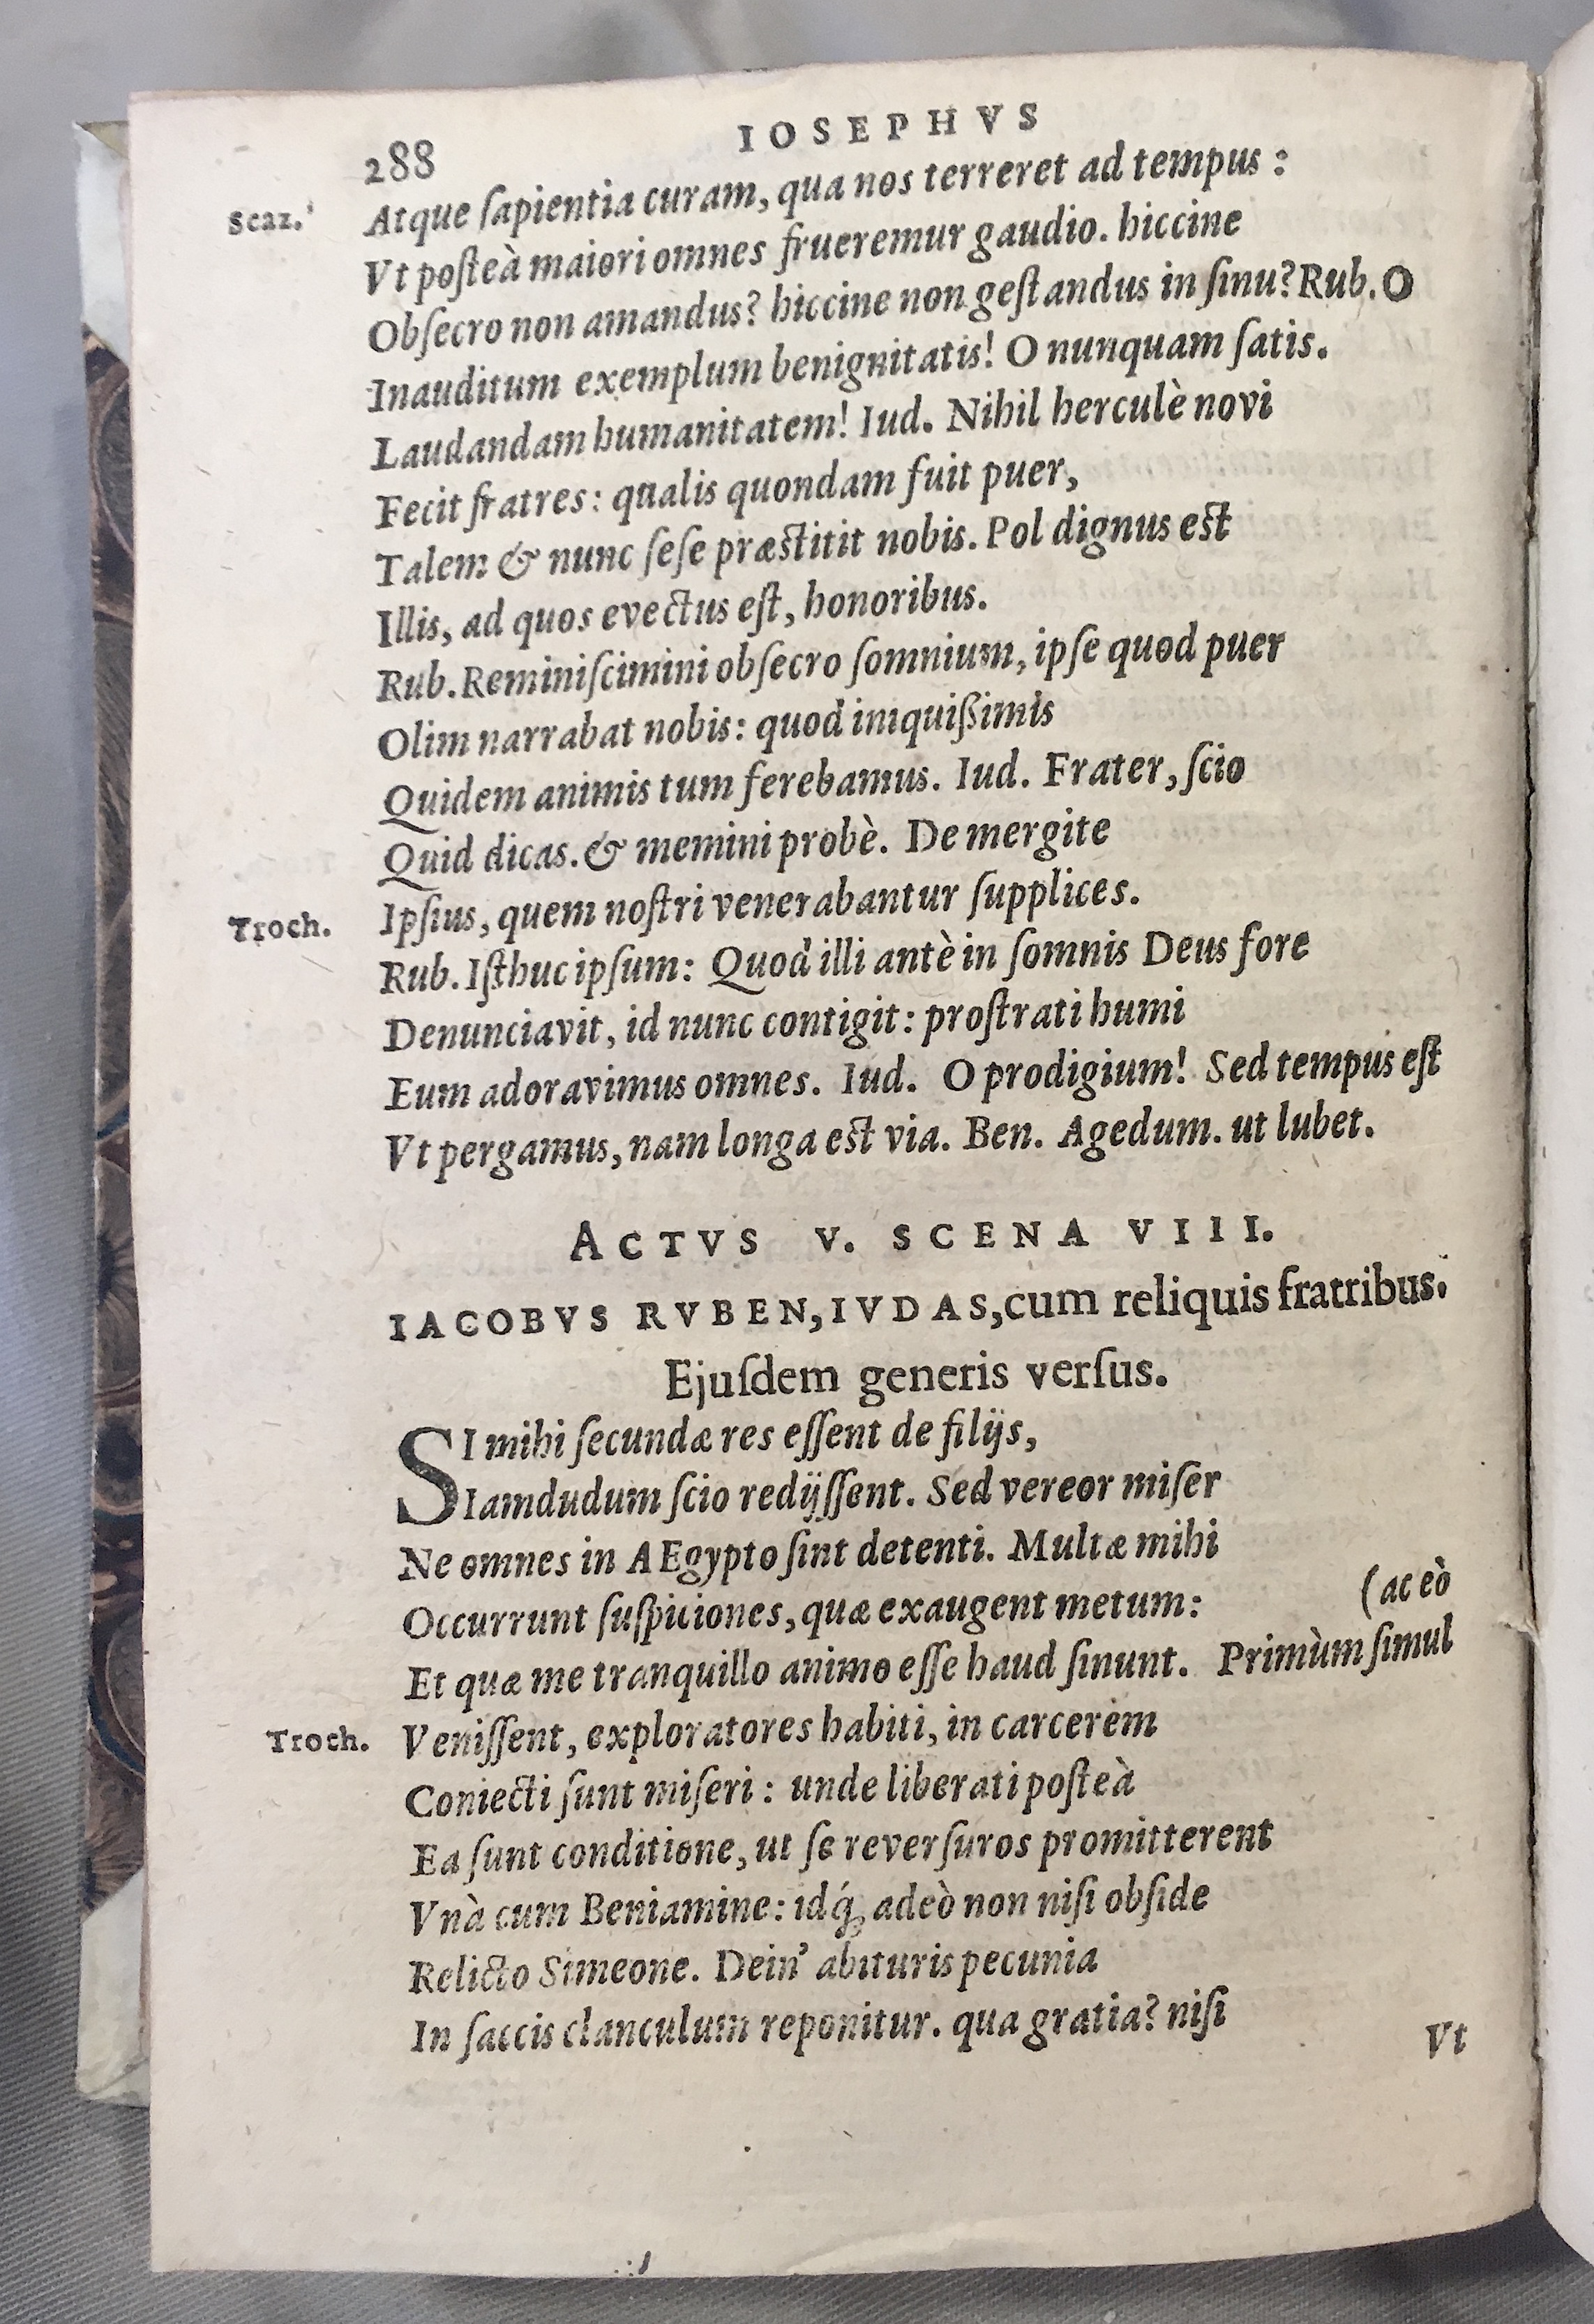 288 IOSEPHVS
Scaz. Atque ſapientia curam, qua nos terreret ad tempus:
Vt poſteà maiori omnes frueremur gaudio. hiccine
Obſecro non amandus? hiccine non geſtandus in ſinu? Rub. O
Inauditum exemplum benignitatis! O nunquam ſatis.
Laudandam humanitatem! Iud. Nihil herculè novi
Fecit fratres: qualis quondam fuit puer,
Talem & nunc ſeſe præſtitit nobis. Pol dignus eſt
Illis, ad quos evectus eſt, honoribus.
Rub. Reminiſcimini obſecro ſomnium, ipſe quod puer
Olim narrabat nobis: quod iniquißimis
Quidem animis tum ferebamus. Iud. Frater, ſcio
Quid dicas. & memini probè. De mergite
Troch. Ipſius, quem noſtri venerabantur ſupplices.
Rub. Iſthuc ipſum: Quod illi antè in ſomnis Deus fore
Denunciavit, id nunc contigit: proſtrati humi
Eum adoravimus omnes. Iud. O prodigium! Sed tempus eſt
Vt pergamus, nam longa eſt via. Ben. Agedum. ut lubet.
ACTVS V. SCENA VIII.
IACOBVS RVBEN, IVDAS, cum reliquis fratribus.
Ejuſdem generis verſus.
SI mihi ſecundæ res eſſent de filijs,
Iamdudum ſcio redijſſent. Sed vereor miſer
Ne omnes in AEgypto ſint detenti. Multæ mihi
Occurrunt ſuſpiciones, quæ exaugent metum: (ac eò
Et quæ me tranquillo animo eſſe haud ſinunt. Primùm ſimul
Troch. Veniſſent, exploratores habiti, in carcerem
Coniecti ſunt miſeri: unde liberati poſteà
Ea ſunt conditione, ut ſe reverſuros promitterent
Vnà cum Beniamine: idq́; adeò non niſi obſide
Relicto Simeone. Dein' abituris pecunia
In ſaccis clanculum reponitur. qua gratia? niſi
Vt